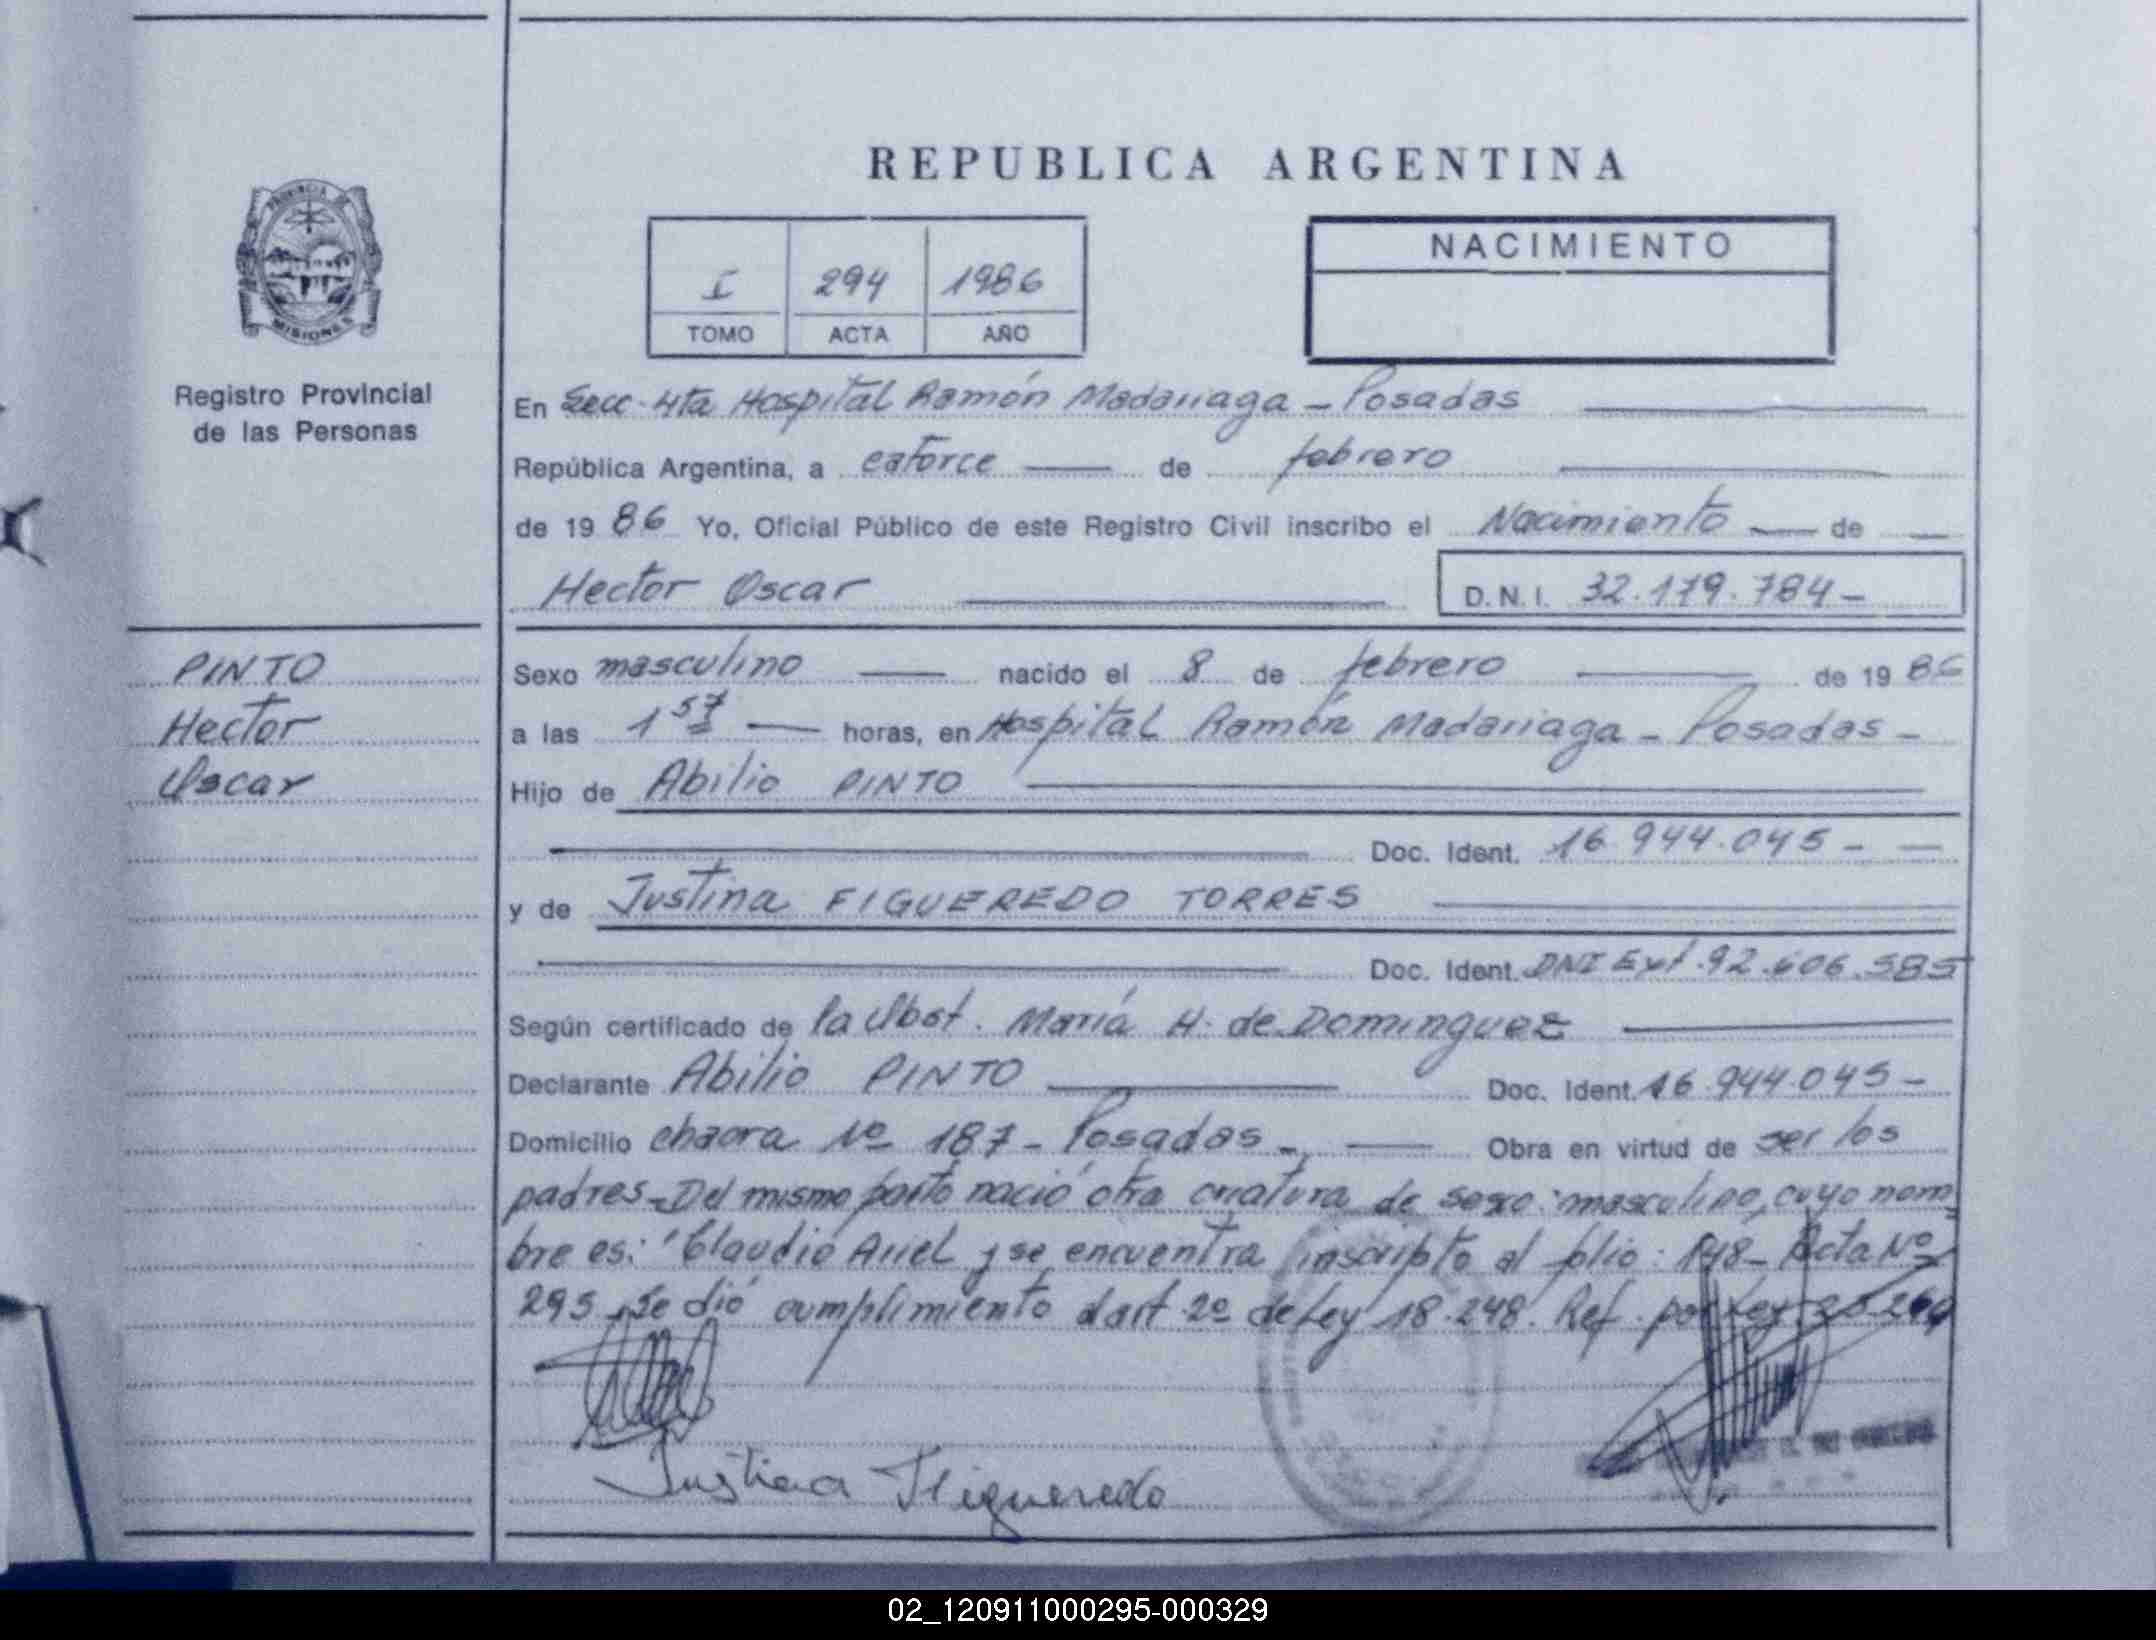 REPUBLICA ARGENTINA
PROVINCIA DE
MISIONES
Registro Provincial
de las Personas
I 294 1986
TOMO ACTA AÑO
NACIMIENTO
En Secc. 4ta Hospital Ramón Madariaga - Posadas
República Argentina, a catorce de febrero
de 19 86 Yo, Oficial Público de este Registro Civil inscribo el Nacimiento de
Hector Oscar D.N.I. 32.179.784-
PINTO
Hector
Oscar
Sexo masculino nacido el 8 de febrero de 19 86
a las 1 57 horas, en Hospital Ramón Madariaga - Posadas -
Hijo de Abilio PINTO
Doc. Ident. 16.944.045 -
y de Justina FIGUEREDO TORRES
Doc. Ident. DNI Ext. 92.606.585
Según certificado de la Obst. María H. de Dominguez
Declarante Abilio PINTO Doc. Ident. 16.944.045 -
Domicilio chacra Nº 187 - Posadas - Obra en virtud de ser los
padres - Del mismo parto nació otra criatura de sexo: masculino, cuyo nom
bre es: "Claudio Ariel y se encuentra inscripto al folio: 148 - Acta Nº
295. Se dió cumplimiento al art. 2º de Ley 18.248. Ref. por Ley
Justina Figueredo
02_120911000295-000329